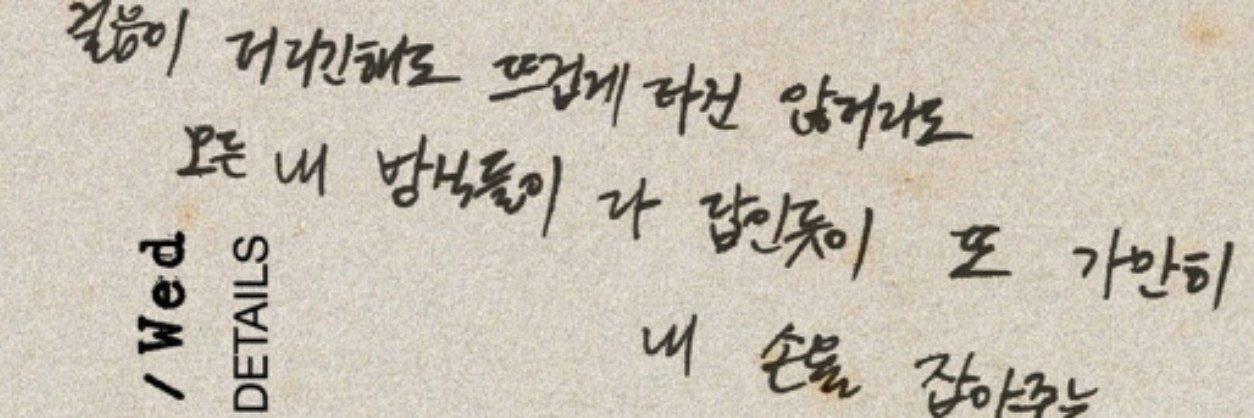 걸음이 어리긴해도 뜨겁게 타건 않더라도
모든 내 방식들이 다 답인듯이 또 가만히
내 손을 잡아주는
/ Wed
DETAILS